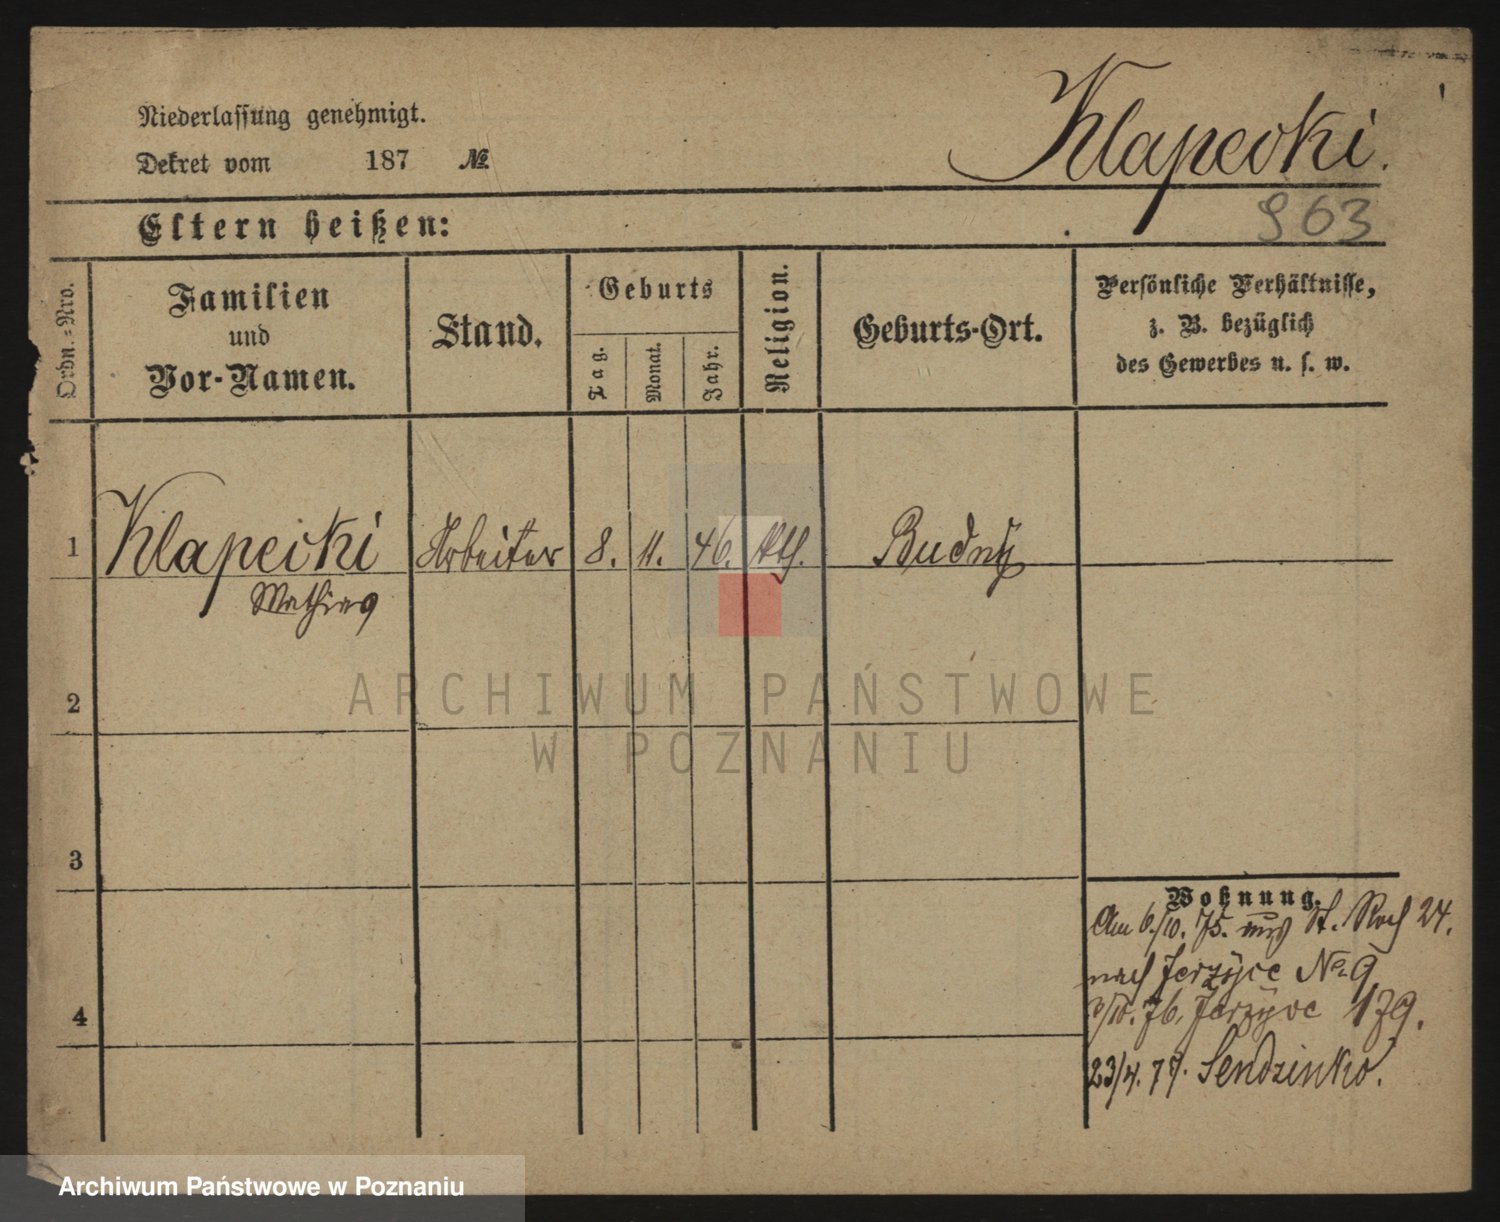 Niederlassung genehmigt.
Dekret vom 187 №
Klapecki.
963
Eltern heißen:
Ordn.-Nro.
Familien
und
Vor-Namen.
Stand.
Geburts
Tag.
Monat.
Jahr.
Religion.
Geburts-Ort.
Persönliche Verhältnisse,
z. B. bezüglich
des Gewerbes u. s. w.
1 Klapecki Arbeiter 8. 11. 46. kth.
Mathias
2
3
4
Wohnung.
Am 6/10. 75. aus St. Roch 24.
nach Jerzyce No 9
/10. 76. Jerzyce 179.
23/4. 77. Sendzinko.
ARCHIWUM PAŃSTWOWE
W POZNANIU
Archiwum Państwowe w Poznaniu